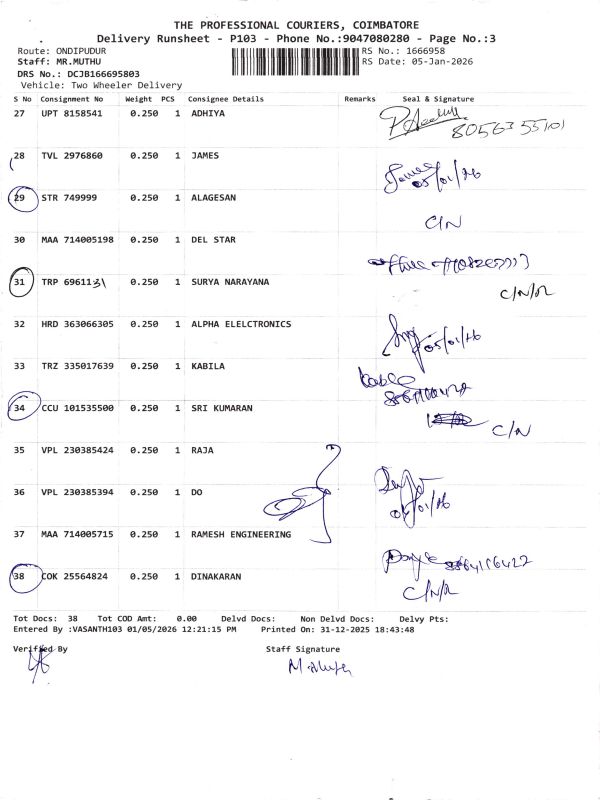 THE PROFESSIONAL COURIERS, COIMBATORE
Delivery Runsheet - P103 - Phone No.:9047080280 - Page No.:3
Route: ONDIPUDUR RS No.: 1666958
Staff: MR.MUTHU RS Date: 05-Jan-2026
DRS No.: DCJB166695803
Vehicle: Two Wheeler Delivery
S No Consignment No Weight PCS Consignee Details Remarks Seal & Signature
27 UPT 8158541 0.250 1 ADHIYA
28 TVL 2976860 0.250 1 JAMES
05/01/26
29 STR 749999 0.250 1 ALAGESAN
C/N
30 MAA 714005198 0.250 1 DEL STAR
31 TRP 6961131 0.250 1 SURYA NARAYANA
C/N/R
32 HRD 363066305 0.250 1 ALPHA ELELCTRONICS
05/01/26
33 TRZ 335017639 0.250 1 KABILA
34 CCU 101535500 0.250 1 SRI KUMARAN
C/N
35 VPL 230385424 0.250 1 RAJA
36 VPL 230385394 0.250 1 DO
37 MAA 714005715 0.250 1 RAMESH ENGINEERING
38 COK 25564824 0.250 1 DINAKARAN
C/N/R
Tot Docs: 38 Tot COD Amt: 0.00 Delvd Docs: Non Delvd Docs: Delvy Pts:
Entered By :VASANTH103 01/05/2026 12:21:15 PM Printed On: 31-12-2025 18:43:48
Verified By Staff Signature